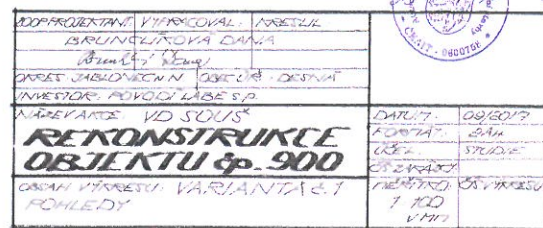 ZODP. PROJEKTANT VYPRACOVAL: KRESLIL
BRUNCLÍKOVÁ DANA
OKRES JABLONEC N.N OBEC. ÚŘ.: DESNÁ
INVESTOR: POVODÍ LABE S.P.
NÁZEV AKCE: VD SOUŠ
REKONSTRUKCE
OBJEKTU čp. 900
OBSAH VÝKRESU: VARIANTA č. 1
POHLEDY
DATUM 09/2017
FORMÁT
ÚČEL STUDIE
ČS ZAKÁZKY
MĚŘÍTKO: ČS VÝKRESU
1 100
V MM
ČKAIT - 0600758